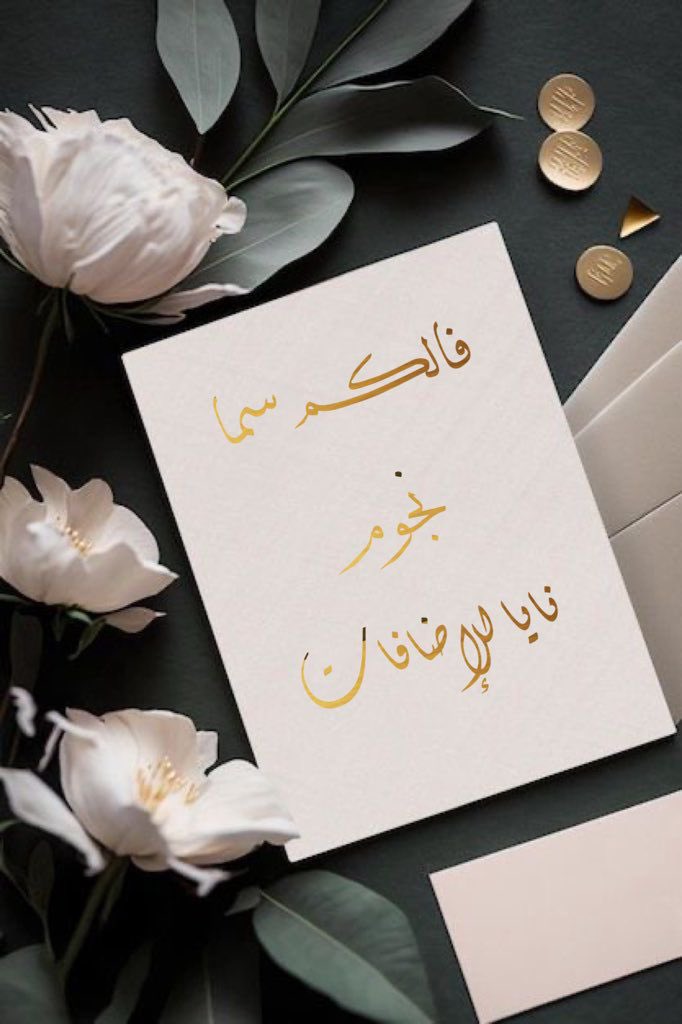 فالكم سما
نجوم
نايا للإضافات